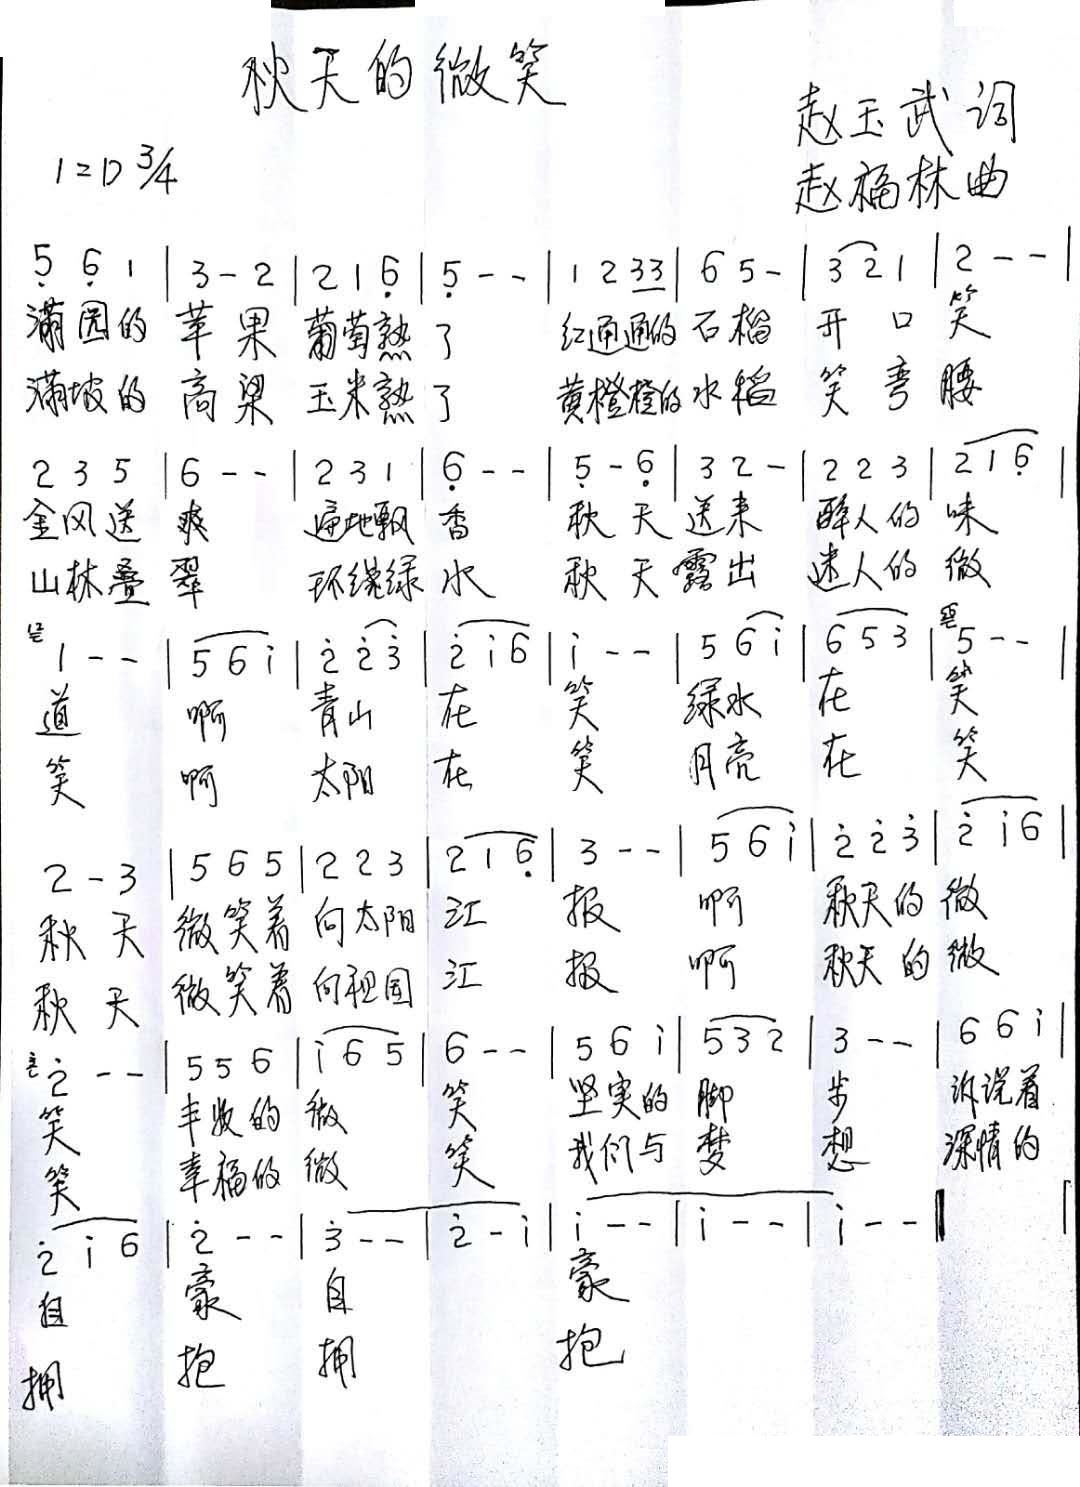 秋天的微笑
赵玉武词
1=D 3/4
赵福林曲
5̣ 6̣ 1 | 3 - 2 | 2 1 6̣ | 5̣ - - | 1 2 33 | 6 5 - | 3 2 1 | 2 - - |
满园的 苹果 葡萄熟了 红通通的石榴 开口笑
满坡的 高梁 玉米熟了 黄橙橙的水稻 笑弯腰
2 3 5 | 6 - - | 2 3 1 | 6̣ - - | 5̣ - 6̣ | 3 2 - | 2 2 3 | 2 1 6̣ |
金风送爽 遍地飘香 秋天送来 醉人的味
山林叠翠 环绕绿水 秋天露出 迷人的微
1 - - | 5 6 i | 2̇ 2̇ 3̇ | 2̇ i 6 | i - - | 5 6 i | 6 5 3 | 5 - - |
道 啊 青山在笑 绿水在笑
笑 啊 太阳在笑 月亮在笑
2 - 3 | 5 6 5 | 2 2 3 | 2 1 6̣ | 3 - - | 5 6 i | 2̇ 2̇ 3̇ | 2̇ i 6 |
秋天 微笑着 向太阳 汇报 啊 秋天的微
秋天 微笑着 向祖国 汇报 啊 秋天的微
2̇ - - | 5 5 6 | i 6 5 | 6 - - | 5 6 i | 5 3 2 | 3 - - | 6 6 i |
笑 丰收的微笑 坚实的脚步 诉说着
笑 幸福的微笑 我们与梦想 深情的
2̇ i 6 | 2̇ - - | 3̇ - - | 2̇ - i | i - - | i - - | i - - ‖
自豪 自豪
拥抱 拥抱